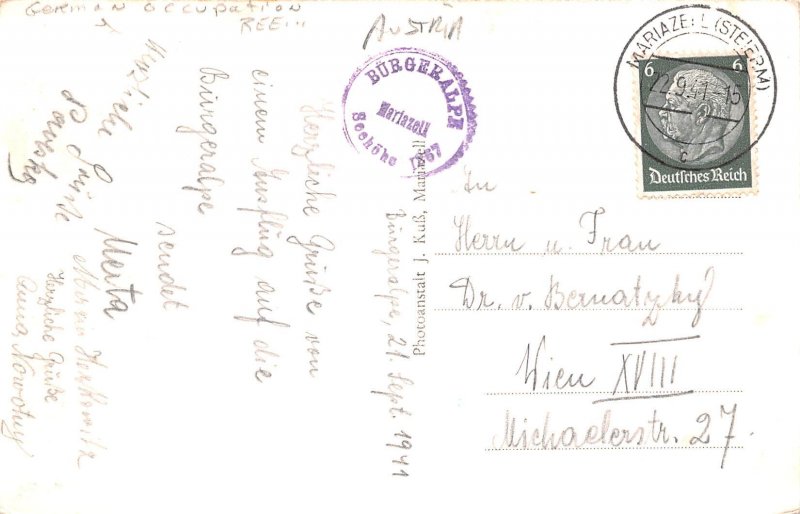 German occupation
AUSTRIA
BÜRGERALPE
Mariazell
Seehöhe 1267
MARIAZELL (STEIERM)
22.9.41-15
c
6 6
Deutsches Reich
Bürgeralpe, 21. Sept. 1941
Herzliche Grüße von
einem Ausflug auf die
Bürgeralpe
sendet
Merta
Viele Grüße
Herzliche Grüße
Anna Nowotny
Photoanstalt J. Kuß, Mariazell
An
Herrn u. Frau
Dr. v. Bernatzky
Wien XVIII
Michaelerstr. 27.